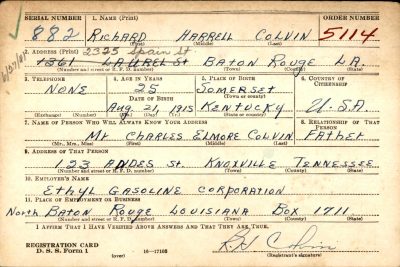 SERIAL NUMBER 1. NAME (Print) ORDER NUMBER
882 RICHARD HARRELL COLVIN 5114
(First) (Middle) (Last)
2325 Spain St.
2. ADDRESS (Print)
1361 LAUREL ST BATON ROUGE LA.
(Number and street or R. F. D. number) (Town) (County) (State)
3. TELEPHONE 4. AGE IN YEARS 5. PLACE OF BIRTH 6. COUNTRY OF CITIZENSHIP
NONE 25 SOMERSET
DATE OF BIRTH (Town or county)
Aug. 21, 1915 KENTUCKY U.S.A
(Exchange) (Number) (Mo.) (Day) (Yr.) (State or country)
7. NAME OF PERSON WHO WILL ALWAYS KNOW YOUR ADDRESS 8. RELATIONSHIP OF THAT PERSON
Mr CHARLES ELMORE COLVIN FATHER
(Mr., Mrs., Miss) (First) (Middle) (Last)
9. ADDRESS OF THAT PERSON
123 ANDES St. KNOXVILLE TENNESSEE
(Number and street or R. F. D. number) (Town) (County) (State)
10. EMPLOYER'S NAME
ETHYL GASOLINE CORPORATION
11. PLACE OF EMPLOYMENT OR BUSINESS
North BATON ROUGE LOUISIANA BOX 1711
(Number and street or R. F. D. number) (Town) (County) (State)
I AFFIRM THAT I HAVE VERIFIED ABOVE ANSWERS AND THAT THEY ARE TRUE.
REGISTRATION CARD
D. S. S. Form 1 16—17105 (Registrant's signature)